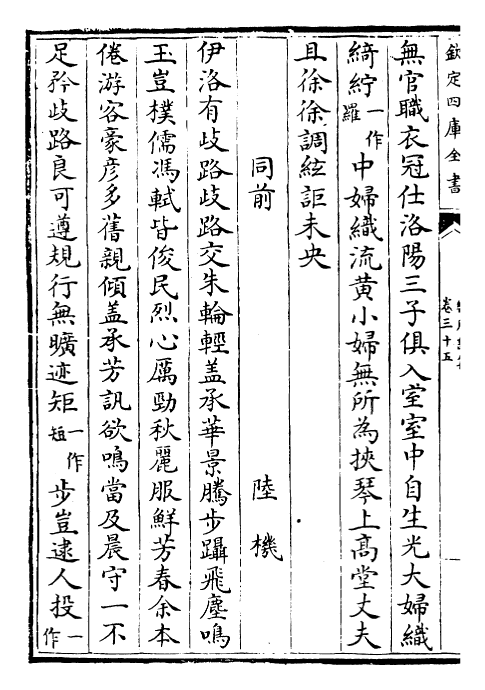 欽定四庫全書
卷三十五
無官職衣冠仕洛陽三子俱入室室中自生光大婦織
綺紵一作羅中婦織流黄小婦無所為挾琴上髙堂丈夫
且徐徐調絃詎未央
同前 陸機
伊洛有歧路歧路交朱輪輕盖承華景騰步躡飛塵鳴
玉豈樸儒馮軾皆俊民烈心厲勁秋麗服鮮芳春余本
倦游客豪彦多舊親傾盖承芳訊欲鳴當及晨守一不
足矜歧路良可遵規行無曠迹矩一作短步豈逮人投一作